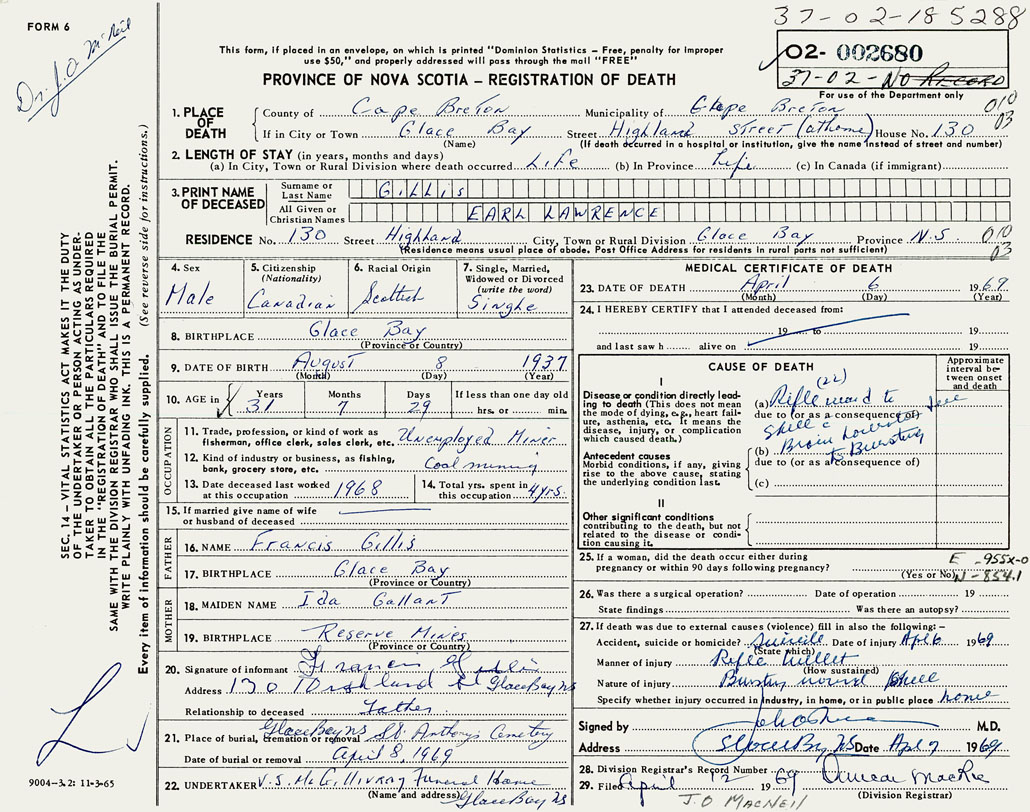 37-02-185288
FORM 6
Dr. J. O. McNeil
This form, if placed in an envelope, on which is printed "Dominion Statistics – Free, penalty for improper
use $50," and properly addressed will pass through the mail "FREE"
PROVINCE OF NOVA SCOTIA – REGISTRATION OF DEATH
O2- 002680
37-02- NO RECORD
For use of the Department only
1. PLACE OF DEATH
County of Cape Breton Municipality of Cape Breton 010
If in City or Town Glace Bay Street Highland Street (at home) House No. 130 03
(Name) (If death occurred in a hospital or institution, give the name instead of street and number)
2. LENGTH OF STAY (in years, months and days)
(a) In City, Town or Rural Division where death occurred Life (b) In Province Life (c) In Canada (if immigrant)
3. PRINT NAME OF DECEASED
Surname or Last Name GILLIS
All Given or Christian Names EARL LAWRENCE
RESIDENCE No. 130 Street Highland City, Town or Rural Division Glace Bay Province N.S. 010
(Residence means usual place of abode. Post Office Address for residents in rural parts not sufficient) 03
SEC. 14 – VITAL STATISTICS ACT MAKES IT THE DUTY
OF THE UNDERTAKER OR PERSON ACTING AS UNDER-
TAKER TO OBTAIN ALL THE PARTICULARS REQUIRED
IN THE "REGISTRATION OF DEATH" AND TO FILE THE
SAME WITH THE DIVISION REGISTRAR WHO SHALL ISSUE THE BURIAL PERMIT.
WRITE PLAINLY WITH UNFADING INK. THIS IS A PERMANENT RECORD.
Every item of information should be carefully supplied. (See reverse side for instructions.)
4. Sex Male
5. Citizenship (Nationality) Canadian
6. Racial Origin Scottish
7. Single, Married, Widowed or Divorced (write the word) Single
8. BIRTHPLACE Glace Bay
(Province or Country)
9. DATE OF BIRTH August 8 1937
(Month) (Day) (Year)
10. AGE in Years 31 Months 7 Days 29 If less than one day old
hrs. or min.
OCCUPATION
11. Trade, profession, or kind of work as
fisherman, office clerk, sales clerk, etc. Unemployed Miner
12. Kind of industry or business, as fishing,
bank, grocery store, etc. Coal mining
13. Date deceased last worked at this occupation 1968
14. Total yrs. spent in this occupation 4 yrs.
15. If married give name of wife
or husband of deceased
FATHER
16. NAME Francis Gillis
17. BIRTHPLACE Glace Bay
(Province or Country)
MOTHER
18. MAIDEN NAME Ida Gallant
19. BIRTHPLACE Reserve Mines
(Province or Country)
20. Signature of informant Francis Gillis
Address 130 Highland St Glace Bay NS
Relationship to deceased Father
21. Place of burial, cremation or removal Glace Bay NS St. Anthonys Cemetery
Date of burial or removal April 8, 1969
22. UNDERTAKER V.S. McGillivray Funeral Home
(Name and address) Glace Bay NS
9004-3.2: 11-3-65
MEDICAL CERTIFICATE OF DEATH
23. DATE OF DEATH April 6 1969
(Month) (Day) (Year)
24. I HEREBY CERTIFY that I attended deceased from:
19 to 19
and last saw h alive on 19
CAUSE OF DEATH
Approximate interval between onset and death
I
Disease or condition directly lead-
ing to death (This does not mean
the mode of dying, e.g., heart fail-
ure, asthenia, etc. It means the
disease, injury, or complication
which caused death.)
(22)
(a) Rifle wound to
due to (or as a consequence of)
Skull c
Antecedent causes
Morbid conditions, if any, giving
rise to the above cause, stating
the underlying condition last.
(b) Brain
Bursting
due to (or as a consequence of)
(c)
II
Other significant conditions
contributing to the death, but not
related to the disease or condi-
tion causing it.
25. If a woman, did the death occur either during
pregnancy or within 90 days following pregnancy?
(Yes or No)
E -955X-0
N-854.1
26. Was there a surgical operation? Date of operation 19
State findings Was there an autopsy?
27. If death was due to external causes (violence) fill in also the following:–
Accident, suicide or homicide? Suicide Date of injury Apl 6 1969
(State which)
Manner of injury Rifle bullet
(How sustained)
Nature of injury Bursting wound skull
Specify whether injury occurred in industry, in home, or in public place home
Signed by M.D.
Address Glace Bay NS Date Apl 7 1969
28. Division Registrar's Record Number
29. Filed April 12 1969 Duncan MacRae
(Division Registrar)
J.O MACNEIL